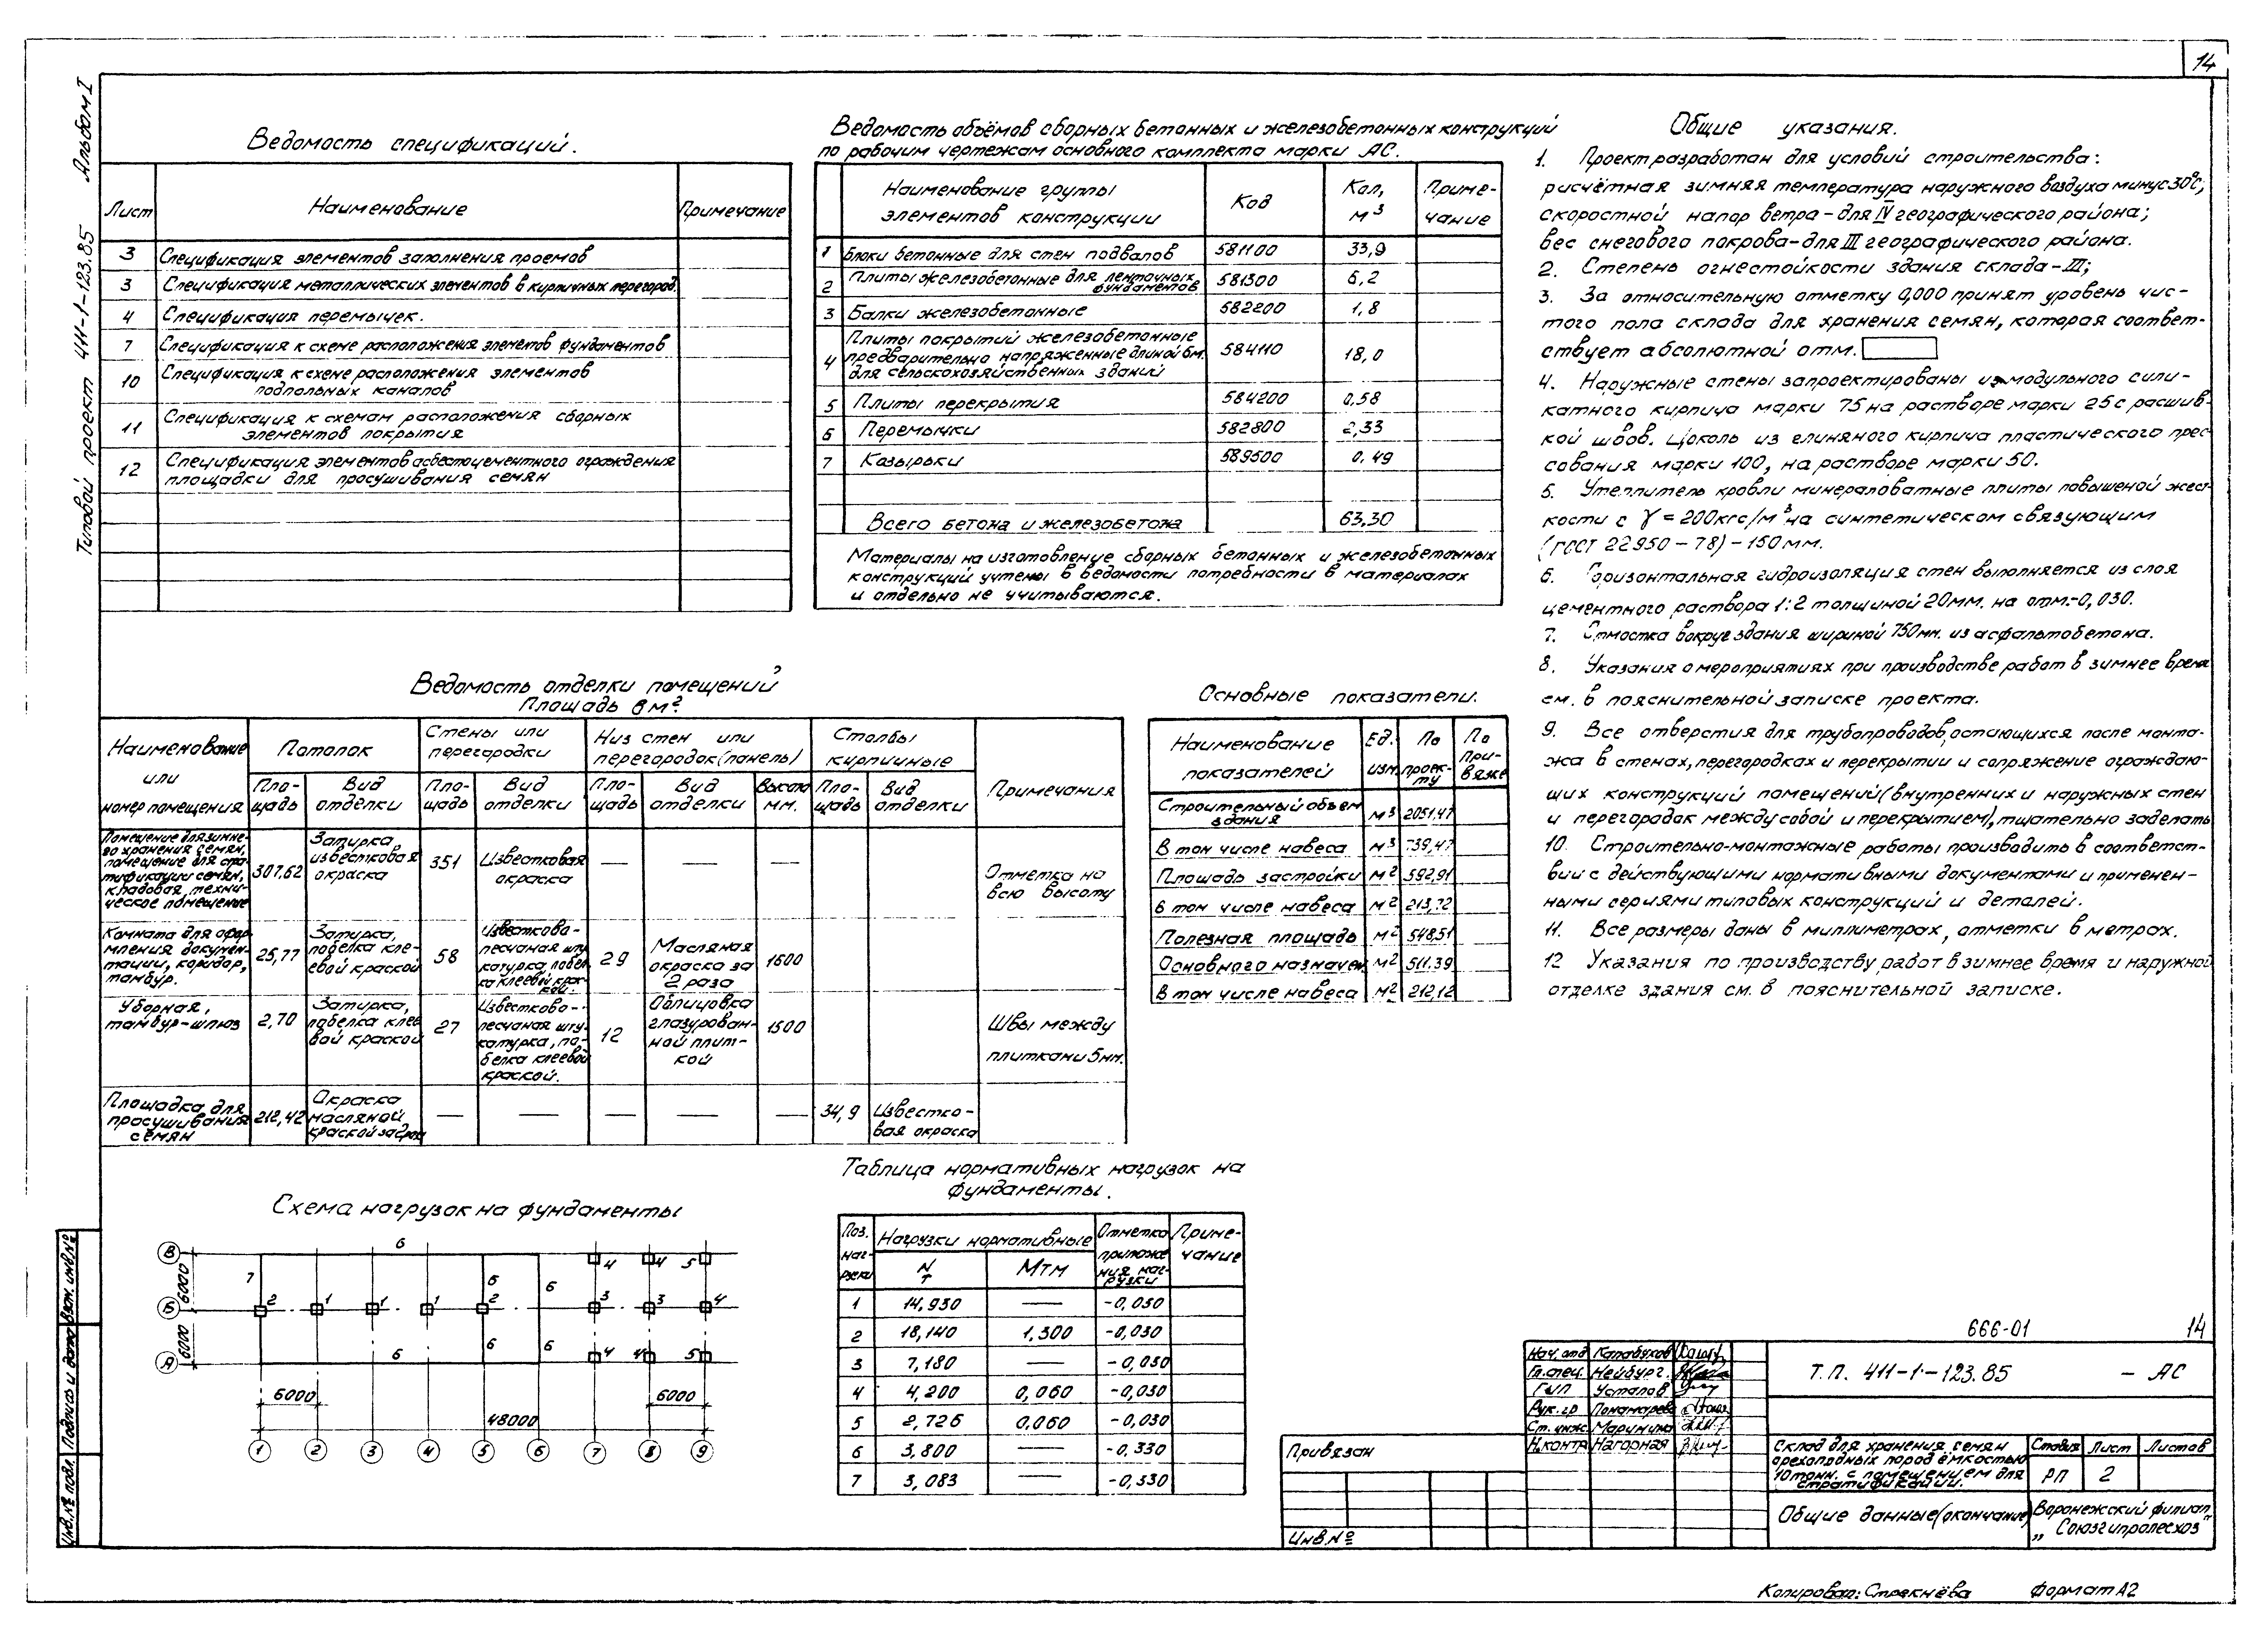 14
Альбом I
Типовой проект 411-1-123.85
Ведомость спецификаций.
Лист Наименование Примечание
3 Спецификация элементов заполнения проемов
3 Спецификация металлических элементов в кирпичных перегород.
4 Спецификация перемычек.
7 Спецификация к схеме расположения элеметов фундаментов
10 Спецификация к схеме расположения элементов
подпольных каналов
11 Спецификация к схемам расположения сборных
элементов покрытия
12 Спецификация элементов асбестоцементного ограждения
площадки для просушивания семян
Ведомость объёмов сборных бетонных и железобетонных конструкций
по рабочим чертежам основного комплекта марки АС.
Наименование группы элементов конструкции Код Кол, м³ Приме-чание
1 Блоки бетонные для стен подвалов 581100 33,9
2 Плиты железобетонные для ленточных фундаментов 581300 6,2
3 Балки железобетонные 582200 1,8
Плиты покрытий железобетонные
4 предварительно напряженные длиной 6м. 584110 18,0
для сельскохозяйственных зданий
5 Плиты перекрытия 584200 0,58
6 Перемычки 582800 2,33
7 Козырьки 589500 0,49
Всего бетона и железобетона 63,30
Материалы на изготовление сборных бетонных и железобетонных
конструкций учтены в ведомости потребности в материалах
и отдельно не учитываются.
Общие указания.
1. Проект разработан для условий строительства:
расчётная зимняя температура наружного воздуха минус 30°С;
скоростной напор ветра - для IV географического района;
вес снегового покрова - для III географического района.
2. Степень огнестойкости здания склада - III;
3. За относительную отметку 0,000 принят уровень чис-
того пола склада для хранения семян, которая соответ-
ствует абсолютной отм.
4. Наружные стены запроектированы из модульного сили-
катного кирпича марки 75 на растворе марки 25 с расшив-
кой швов. Цоколь из глиняного кирпича пластического прес-
сования марки 100, на растворе марки 50.
5. Утеплитель кровли минераловатные плиты повышеной жест-
кости с γ = 200кгс/м³ на синтетическом связующим
(ГОСТ 22950 - 78) - 150 мм.
6. Горизонтальная гидроизоляция стен выполняется из слоя
цементного раствора 1:2 толщиной 20мм. на отм.-0,030.
7. Отмостка вокруг здания шириной 750мм. из асфальтобетона.
8. Указания о мероприятиях при производстве работ в зимнее время
см. в пояснительной записке проекта.
9. Все отверстия для трубопроводов, остающихся после монта-
жа в стенах, перегородках и перекрытии и сопряжение ограждаю-
щих конструкций помещений (внутренних и наружных стен
и перегородок между собой и перекрытием), тщательно заделать
10. Строительно-монтажные работы производить в соответст-
вии с действующими нормативными документами и применен-
ными сериями типовых конструкций и деталей.
11. Все размеры даны в миллиметрах, отметки в метрах.
12 Указания по производству работ в зимнее время и наружной
отделке здания см. в пояснительной записке.
Ведомость отделки помещений
Площадь в м².
Наименование или номер помещения
Потолок
Стены или перегородки
Низ стен или перегородок (панель)
Столбы кирпичные
Примечания
Пло-щадь Вид отделки Пло-щадь Вид отделки Пло-щадь Вид отделки Высота мм. Пло-щадь Вид отделки
Помещение для зимне-го хранения семян, помещение для стра-тификации семян, кладовая, техни-ческое помещение 307,62 Затирка известковая окраска 351 Известковая окраска — — — Отметка на всю высоту
Комната для офор-мления докумен-тации, коридор, тамбур. 25,77 Затирка, побелка кле-евой краской 58 Известково-песчаная шту-катурка, побел-ка клеевой крас-кой. 29 Масляная окраска за 2 раза 1600
Уборная, тамбур-шлюз 2,70 Затирка, побелка клее-вой краской 27 Известково-песчаная шту-катурка, по-белка клеевой краской. 12 Облицовка глазурован-ной плит-кой 1500 Швы между плитками 5мм.
Площадка для просушивания семян 212,42 Окраска масляной краской за 2 раза — — — — — 34,9 Известко-вая окраска
Основные показатели.
Наименование показателей Ед. изм. По проек-ту По при-вязке
Строительный объем здания м³ 2051,47
В том числе навеса м³ 739,47
Площадь застройки м² 592,91
в том числе навеса м² 213,72
Полезная площадь м² 548,51
Основного назначен. м² 511,39
В том числе навеса м² 212,12
Схема нагрузок на фундаменты
В Б А
6000 6000
6 7 2 1 1 1 2 6 6 4 4 5 3 3 4
6 6 6 4 4 5
6000 48000 6000
1 2 3 4 5 6 7 8 9
Таблица нормативных нагрузок на
фундаменты.
Поз. наг-рузки Нагрузки нормативные Отметка приложе ния наг-рузки Приме-чание
N т Мтм
1 14,930 — -0,030
2 18,140 1,300 -0,030
3 7,180 — -0,030
4 4,200 0,060 -0,030
5 2,726 0,060 -0,030
6 3,800 — -0,330
7 3,083 — -0,330
666-01 14
Нач. отд Карабухов
Гл. спец. Нейбург.
ГИП Усталов
Рук. гр Пономарева
Ст. инж Маринина
Н.контр Нагорная
Т.П. 411-1-123.85 — АС
Привязан
Инв.№
Склад для хранения семян
орехоплодных пород ёмкостью
10тонн. с помещением для
стратификации.
Стадия Лист Листов
РП 2
Общие данные (окончание)
Воронежский филиал
„Союзгипролесхоз"
Инв.№ подл. Подпись и дата Взам. инв.№
Копировал: Стрекнёва Формат А2